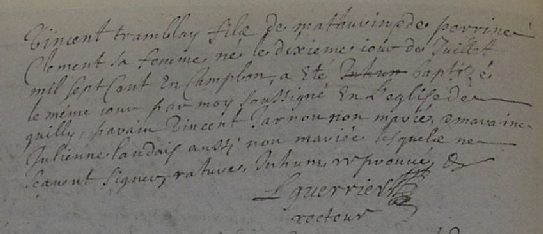 Vincent tramblay fils de mathurin & de perrine
Clement sa femme ne le dixieme iour de Juillet
mil sept Cent En Campbon, a eté Inhum baptizé
le même iour par moy soussigné En L'eglise de
quilly, parain Vincent Jarnou non marié, & maraine
Julienne landais aussi non mariée lesquels ne
scavent signer, rature Inhum, approuvé, &
L guerrier
recteur